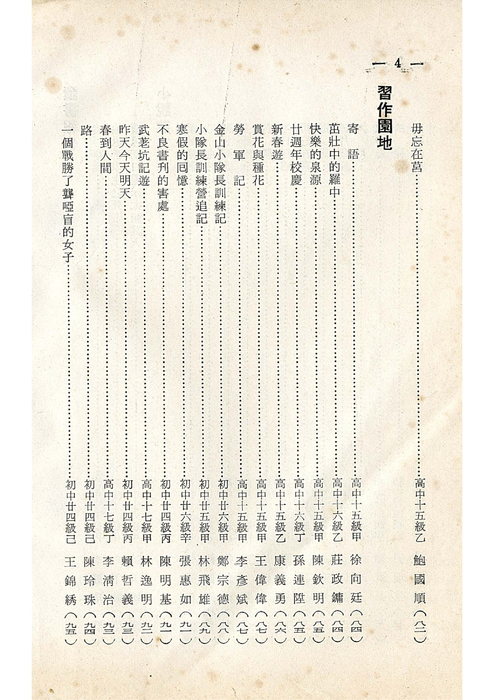 — 4 —
毋忘在莒……高中十五級乙 鮑國順（八二）
習作園地
寄語……高中十五級甲 徐向廷（八四）
茁壯中的羅中……高中十六級乙 莊政鏞（八四）
快樂的泉源……高中十五級甲 陳欽明（八五）
廿週年校慶……高中十六級丁 孫連陞（八五）
新春遊……高中十五級乙 康義勇（八六）
賞花與種花……高中十五級甲 王偉偉（八七）
勞軍記……高中十五級甲 李彥斌（八七）
金山小隊長訓練記……初中廿六級甲 鄭宗德（八八）
小隊長訓練營追記……初中廿五級甲 林飛雄（八九）
寒假的回憶……初中廿六級辛 張惠如（九一）
不良書刊的害處……初中廿四級丙 陳明基（九一）
武荖坑記遊……高中十七級甲 林逸明（九二）
昨天今天明天……初中廿四級丙 賴哲義（九三）
春到人間……高中十七級丁 李清治（九三）
路……初中廿四級己 陳玲珠（九四）
一個戰勝了聾啞盲的女子……初中廿四級己 王錦綉（九五）